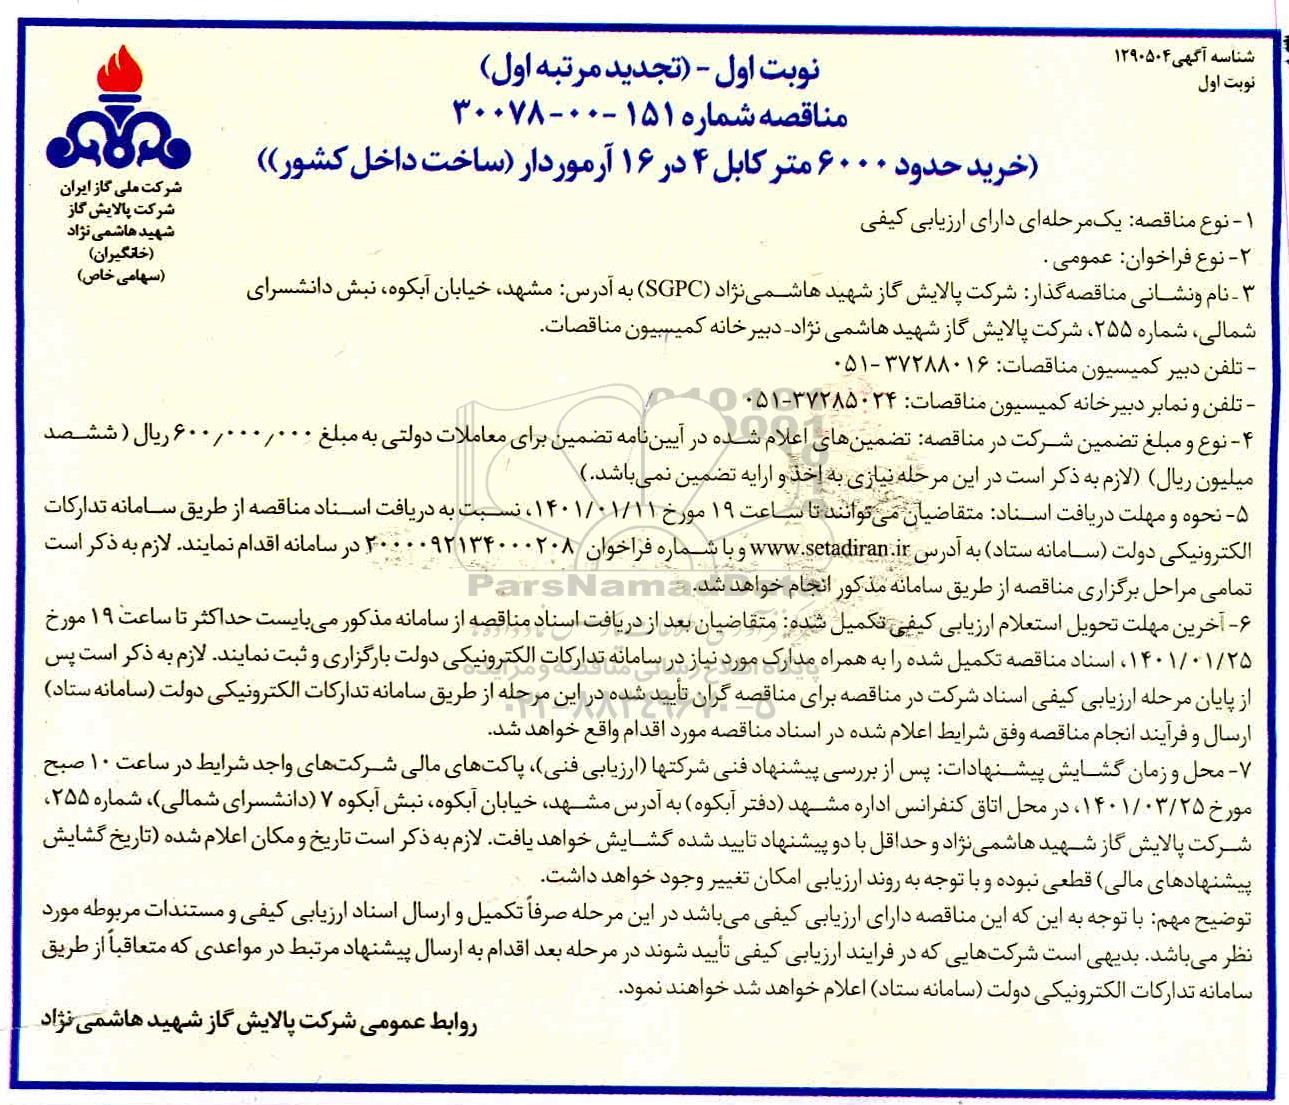 شناسه آگهی ۱۲۹۰۵۰۴
نوبت اول
نوبت اول - (تجدید مرتبه اول)
مناقصه شماره ۱۵۱ -۰۰-۳۰۰۷۸
(خرید حدود ۶۰۰۰ متر کابل ۴ در ۱۶ آرموردار (ساخت داخل کشور))
شرکت ملی گاز ایران
شرکت پالایش گاز
شهید هاشمی نژاد
(خانگیران)
(سهامی خاص)
۱- نوع مناقصه: یک‌مرحله‌ای دارای ارزیابی کیفی
۲- نوع فراخوان: عمومی .
۳ـ نام ونشانی مناقصه‌گذار: شرکت پالایش گاز شهید هاشمی‌نژاد (SGPC) به آدرس: مشهد، خیابان آبکوه، نبش دانشسرای
شمالی، شماره ۲۵۵، شرکت پالایش گاز شهید هاشمی نژاد- دبیرخانه کمیسیون مناقصات.
- تلفن دبیر کمیسیون مناقصات: ۳۷۲۸۸۰۱۶ -۰۵۱
- تلفن و نمابر دبیرخانه کمیسیون مناقصات: ۳۷۲۸۵۰۲۴-۰۵۱
۴- نوع و مبلغ تضمین شرکت در مناقصه: تضمین‌های اعلام شده در آیین‌نامه تضمین برای معاملات دولتی به مبلغ ۶۰۰٫۰۰۰٫۰۰۰ ریال ( ششصد
میلیون ریال) (لازم به ذکر است در این مرحله نیازی به اخذ و ارایه تضمین نمی‌باشد.)
۵- نحوه و مهلت دریافت اسناد: متقاضیان می‌توانند تا ساعت ۱۹ مورخ ۱۴۰۱/۰۱/۱۱، نسبت به دریافت اسناد مناقصه از طریق سامانه تدارکات
الکترونیکی دولت (سامانه ستاد) به آدرس www.setadiran.ir و با شماره فراخوان ۲۰۰۰۰۹۲۱۳۴۰۰۰۲۰۸ در سامانه اقدام نمایند. لازم به ذکر است
تمامی مراحل برگزاری مناقصه از طریق سامانه مذکور انجام خواهد شد.
۶- آخرین مهلت تحویل استعلام ارزیابی کیفی تکمیل شده: متقاضیان بعد از دریافت اسناد مناقصه از سامانه مذکور می‌بایست حداکثر تا ساعت ۱۹ مورخ
۱۴۰۱/۰۱/۲۵، اسناد مناقصه تکمیل شده را به همراه مدارک مورد نیاز در سامانه تدارکات الکترونیکی دولت بارگزاری و ثبت نمایند. لازم به ذکر است پس
از پایان مرحله ارزیابی کیفی اسناد شرکت در مناقصه برای مناقصه گران تأیید شده در این مرحله از طریق سامانه تدارکات الکترونیکی دولت (سامانه ستاد)
ارسال و فرآیند انجام مناقصه وفق شرایط اعلام شده در اسناد مناقصه مورد اقدام واقع خواهد شد.
۷- محل و زمان گشایش پیشنهادات: پس از بررسی پیشنهاد فنی شرکتها (ارزیابی فنی)، پاکت‌های مالی شرکت‌های واجد شرایط در ساعت ۱۰ صبح
مورخ ۱۴۰۱/۰۳/۲۵، در محل اتاق کنفرانس اداره مشهد (دفتر آبکوه) به آدرس مشهد، خیابان آبکوه، نبش آبکوه ۷ (دانشسرای شمالی)، شماره ۲۵۵،
شرکت پالایش گاز شهید هاشمی‌نژاد و حداقل با دو پیشنهاد تایید شده گشایش خواهد یافت. لازم به ذکر است تاریخ و مکان اعلام شده (تاریخ گشایش
پیشنهادهای مالی) قطعی نبوده و با توجه به روند ارزیابی امکان تغییر وجود خواهد داشت.
توضیح مهم: با توجه به این که این مناقصه دارای ارزیابی کیفی می‌باشد در این مرحله صرفاً تکمیل و ارسال اسناد ارزیابی کیفی و مستندات مربوطه مورد
نظر می‌باشد. بدیهی است شرکت‌هایی که در فرایند ارزیابی کیفی تأیید شوند در مرحله بعد اقدام به ارسال پیشنهاد مرتبط در مواعدی که متعاقباً از طریق
سامانه تدارکات الکترونیکی دولت (سامانه ستاد) اعلام خواهد شد خواهند نمود.
روابط عمومی شرکت پالایش گاز شهید هاشمی نژاد
ParsNamadData
پایگاه اطلاع رسانی مناقصه و مزایده
۰۲۱-۸۸۳۴۹۶۷۰-۵